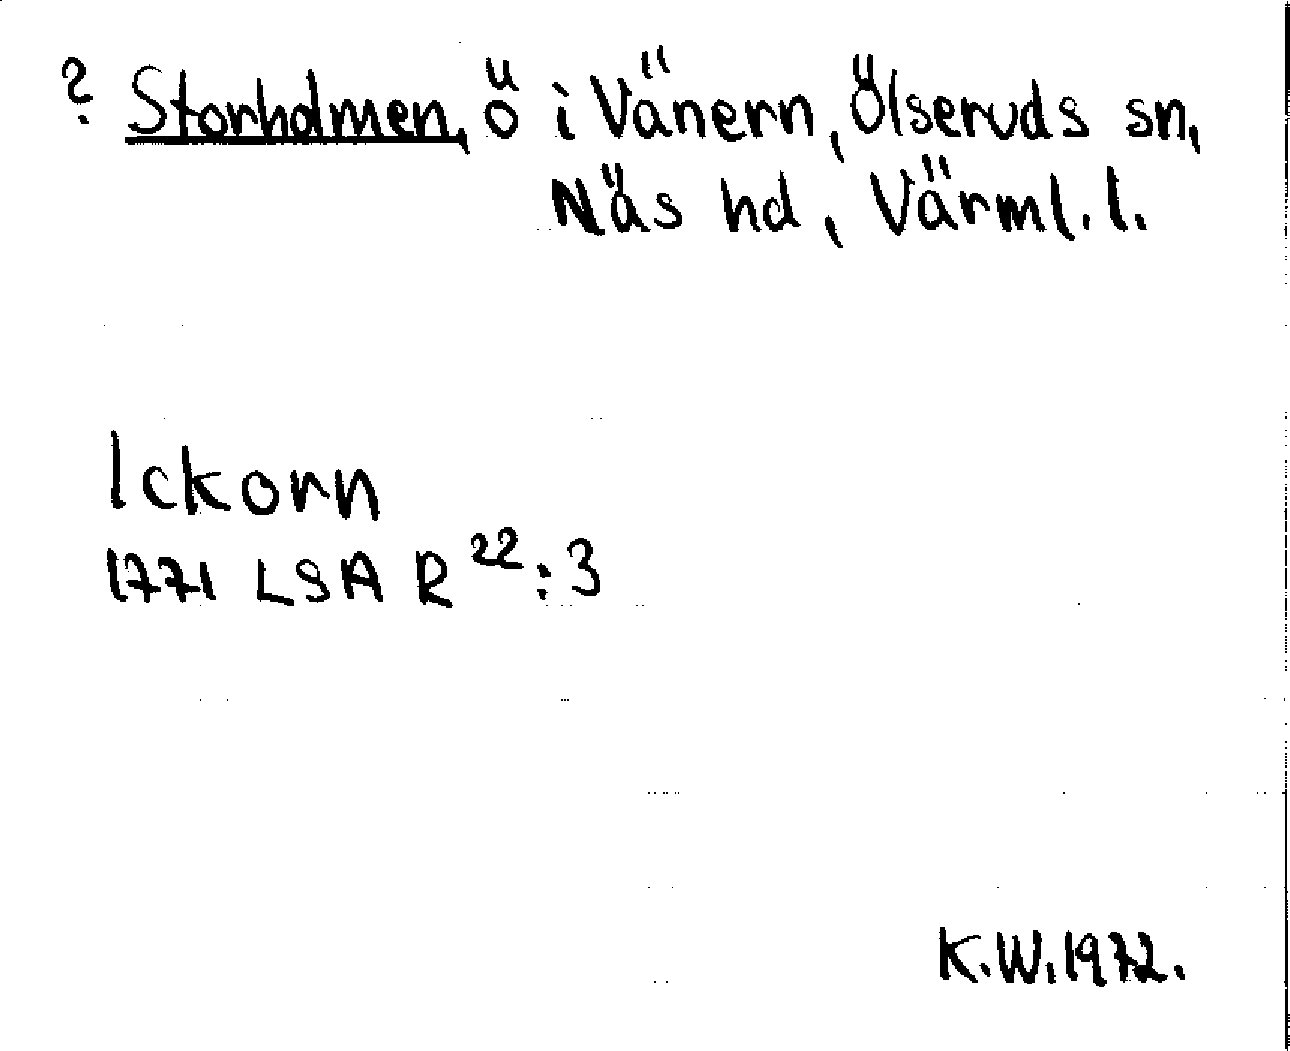 ? Storholmen, ö i Vänern, Ölseruds sn,
Näs hd, Värml. l.
Ickorn
1771 LSA R 22:3
K.W. 1972.